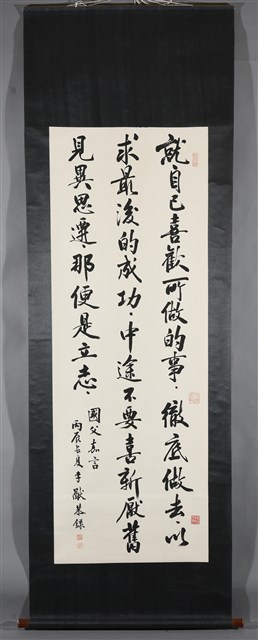 就自己喜歡所做的事．徹底做去．以
求最後的成功．中途不要喜新厭舊
見異思遷．那便是立志．
國父嘉言
丙辰長夏李猷恭錄